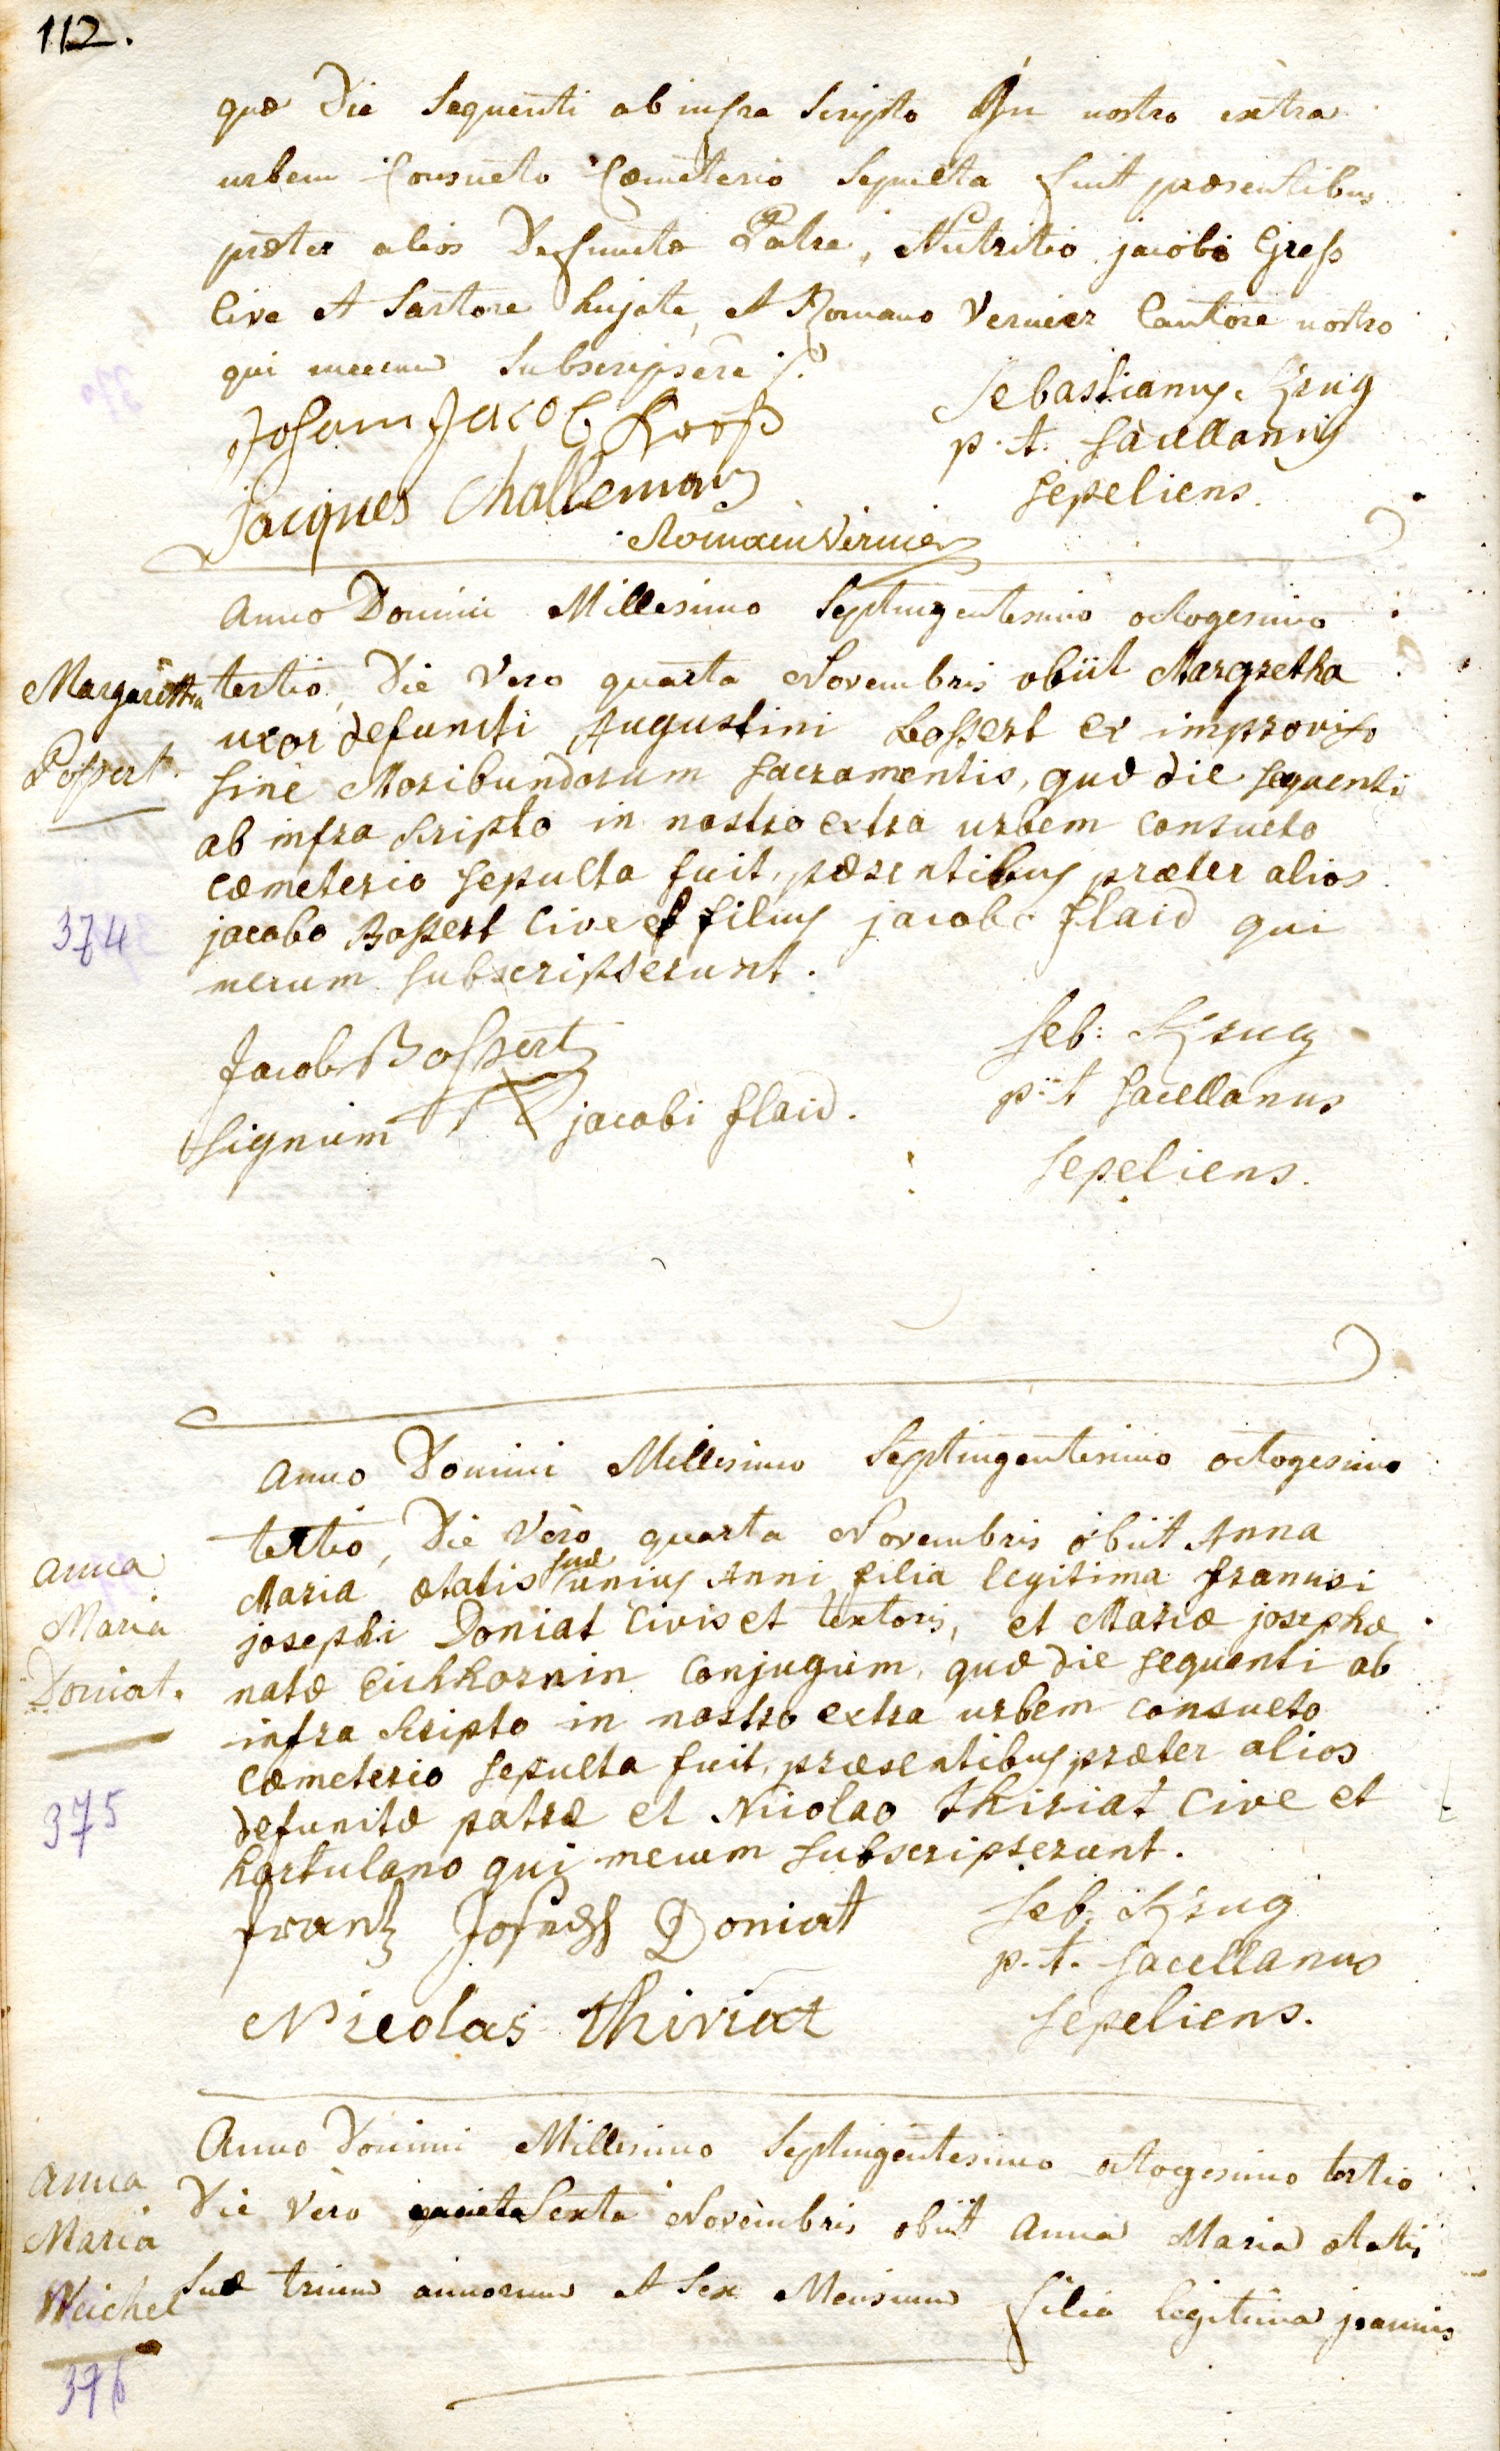 112.
quæ Die Sequenti ab infra Scripto In nostro extra
urbem Consueto Cœmeterio Sepulta fuit præsentibus
præter alios Defunctæ Patre, Nutritio jacobo Greß
Cive et Sartore hujate, et Romano Vernier Cantore nostro
qui mecum Subscripsere ./.
Sebastianus Krug
p. t. Sacellanus
Sepeliens.
Johann Jacob
jacques Challemar
Romain Vernier
Anno Domini Millesimo Septingentesimo octogesimo
Margaretha
Bossert.
374
tertio, Die Vero quarta Novembris obiit Margretha
uxor defuncti Augustini Bossert ex improviso
sine Moribundorum Sacramentis, quæ die sequenti
ab infra scripto in nostro extra urbem consueto
cœmeterio sepulta fuit, præsentibus præter alios
jacobo Bossert Cive et filius jacobo flaid qui
mecum subscripserunt.
Jacob Bossert
Signum jacobi flaid.
Seb: Krug
p: t Sacellanus
Sepeliens.
Anno Domini Millesimo Septingentesimo octogesimo
Anna
Maria
Doniat.
375
tertio, Die Vero quarta Novembris obiit Anna
Maria ætatis suæ unius Anni filia legitima francisi
josephi Doniat Civis et textoris, et Mariæ josephæ
natæ Eichhornin Conjugum, quæ die sequenti ab
infra scripto in nostro extra urbem consueto
cœmeterio sepulta fuit, præsentibus præter alios
defunctæ patre et Nicolao thiriat Cive et
hortulano qui mecum subscripserunt.
frantz Joseph Doniat
Nicolas thiriat
Seb: Krug
p. t. Sacellanus
Sepeliens.
Anna
Maria
Weichel
376
Anno Domini Millesimo Septingentesimo octogesimo tertio
Die Vero Sexta Novembris obiit Anna Maria ætatis
Suæ trium annorum et Sex Mensium filia legitima joannis